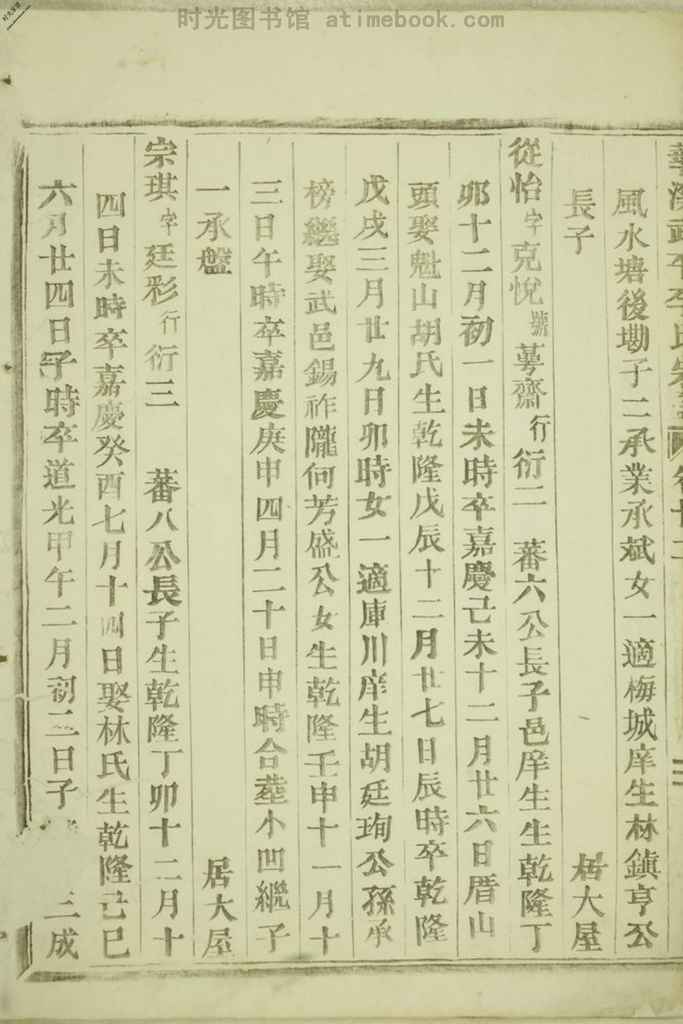 时光图书馆 atimebook.com
風水塘後墈子二承業承斌女一適梅城庠生林鎮亨公
長子 居大屋
從怡字克悅號蕚齋行衍二 蕃六公長子邑庠生生乾隆丁
卯十二月初一日未時卒嘉慶己未十二月廿六日厝山
頭娶魁山胡氏生乾隆戊辰十二月廿七日辰時卒乾隆
戊戌三月廿九日卯時女一適庫川庠生胡廷珣公孫承
榜繼娶武邑錫祚隴何芳盛公女生乾隆壬申十一月十
三日午時卒嘉慶庚申四月二十日申時合塟小凹繼子
一承盤 居大屋
宗琪字廷彩行衍三 蕃八公長子生乾隆丁卯十二月十
四日未時卒嘉慶癸酉七月十四日娶林氏生乾隆己巳
六月廿四日子時卒道光甲午二月初三日子 三成